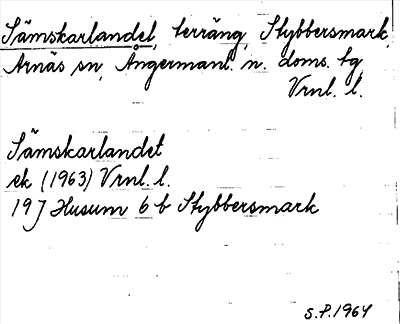 Sämskarlandet, terräng, Stybbersmark,
Arnäs sn, Ångermanl. n. doms. tg,
Vrnl. l.
Sämskarlandet
ek (1963) Vrnl. l.
19 J Husum 6 b Stybbersmark
S.P. 1964